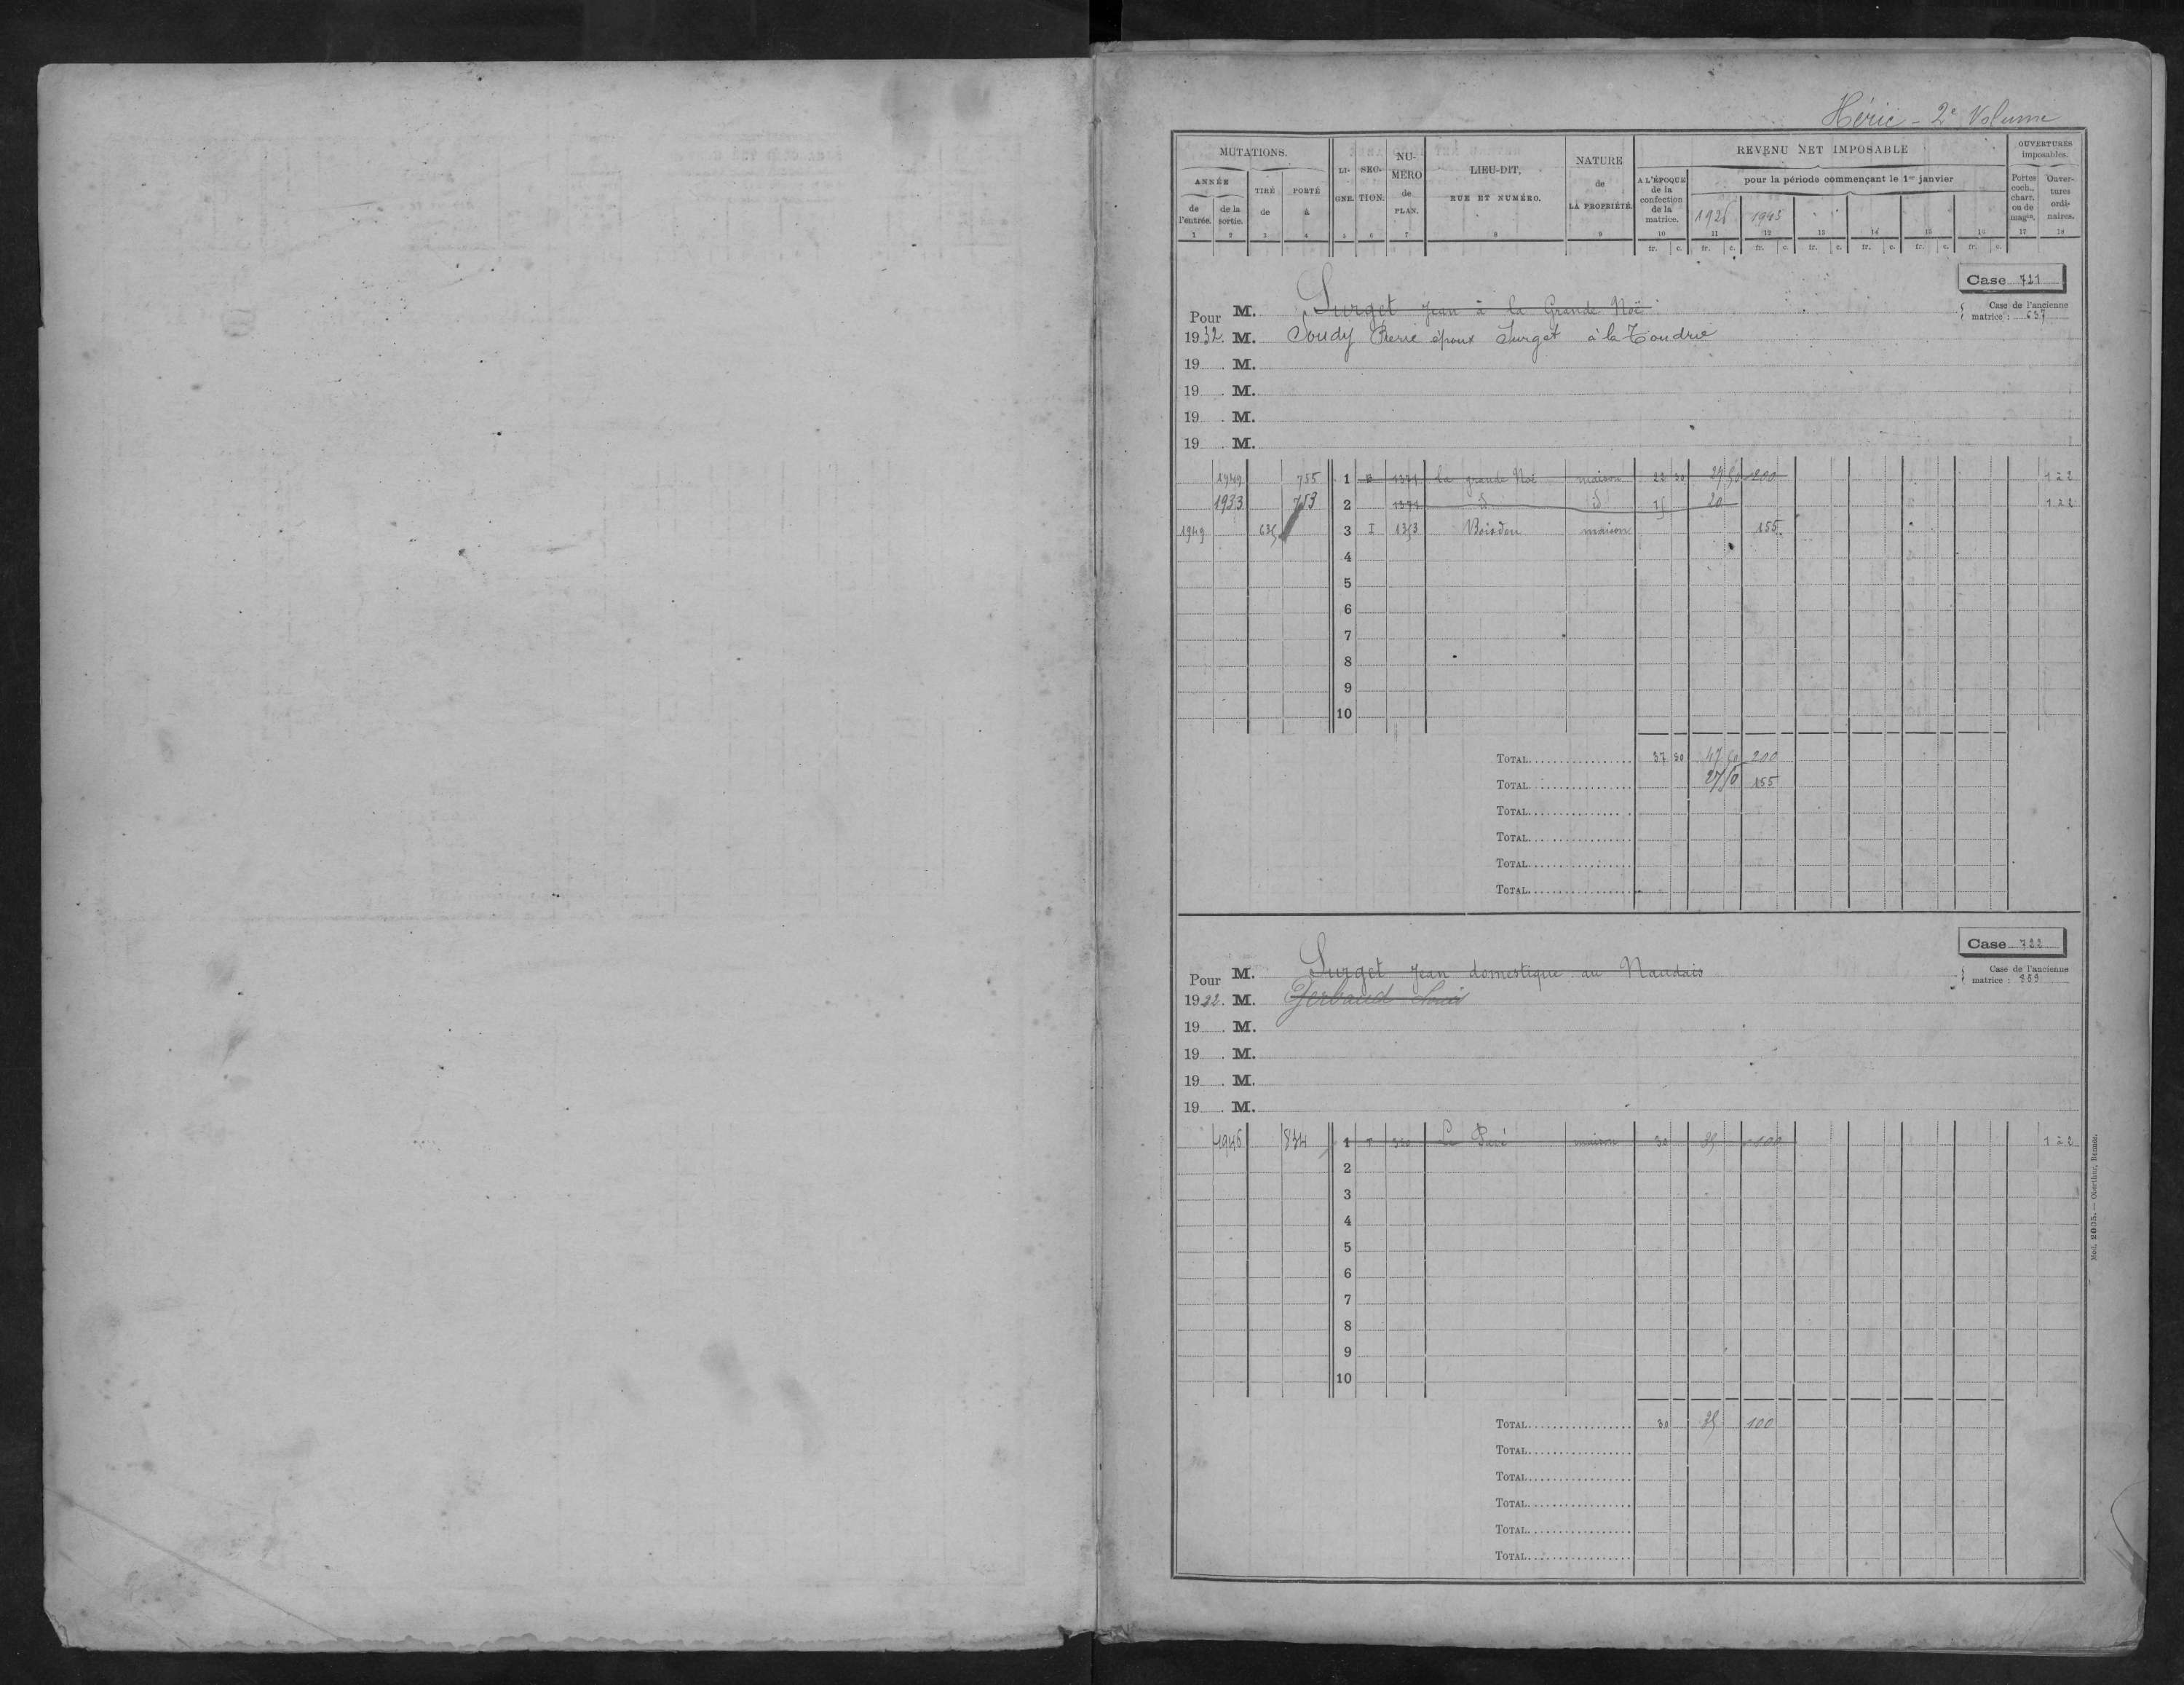 Héric - 2e Volume
MUTATIONS. LI- SEC- NU- LIEU-DIT, NATURE REVENU NET IMPOSABLE OUVERTURES
GNE. TION. MÉRO RUE ET NUMÉRO. de imposables.
ANNÉE TIRÉ PORTÉ de LA PROPRIÉTÉ. A L'ÉPOQUE pour la période commençant le 1er janvier Portes Ouver-
de de la de à PLAN. de la coch., tures
l'entrée. sortie. confection charr. ordi-
de la ou de naires.
matrice. 1926 1943 mages.
1 2 3 4 5 6 7 8 9 10 11 12 13 14 15 16 17 18
fr. c. fr. c. fr. c. fr. c. fr. c. fr. c. fr. c.
Case 721
Pour M. Surget Jean à la Grande Noë
Case de l'ancienne matrice : 637
1932. M. Soudy Pierre époux Surget à la
19 . M.
19 . M.
19 . M.
19 . M.
1949 755 1 B 1371 la grande Noë maison 22 30 27 50 200 1 à 2
1933 753 2 1371 d° d° 15 20 1 à 2
1949 635 3 I 1353 Boisdon maison 155
4
5
6
7
8
9
10
TOTAL 37 30 47 50 200
TOTAL 27 50 155
TOTAL
TOTAL
TOTAL
TOTAL
Case 722
Pour M. Surget Jean domestique au Naudais
Case de l'ancienne matrice :
1922. M. Gerbaud
19 . M.
19 . M.
19 . M.
19 . M.
1946 834 1 maison 30 35 100 1 à 2
2
3
4
5
6
7
8
9
10
TOTAL 30 35 100
TOTAL
TOTAL
TOTAL
TOTAL
TOTAL
Mod. 2005. — Oberthur, Rennes.